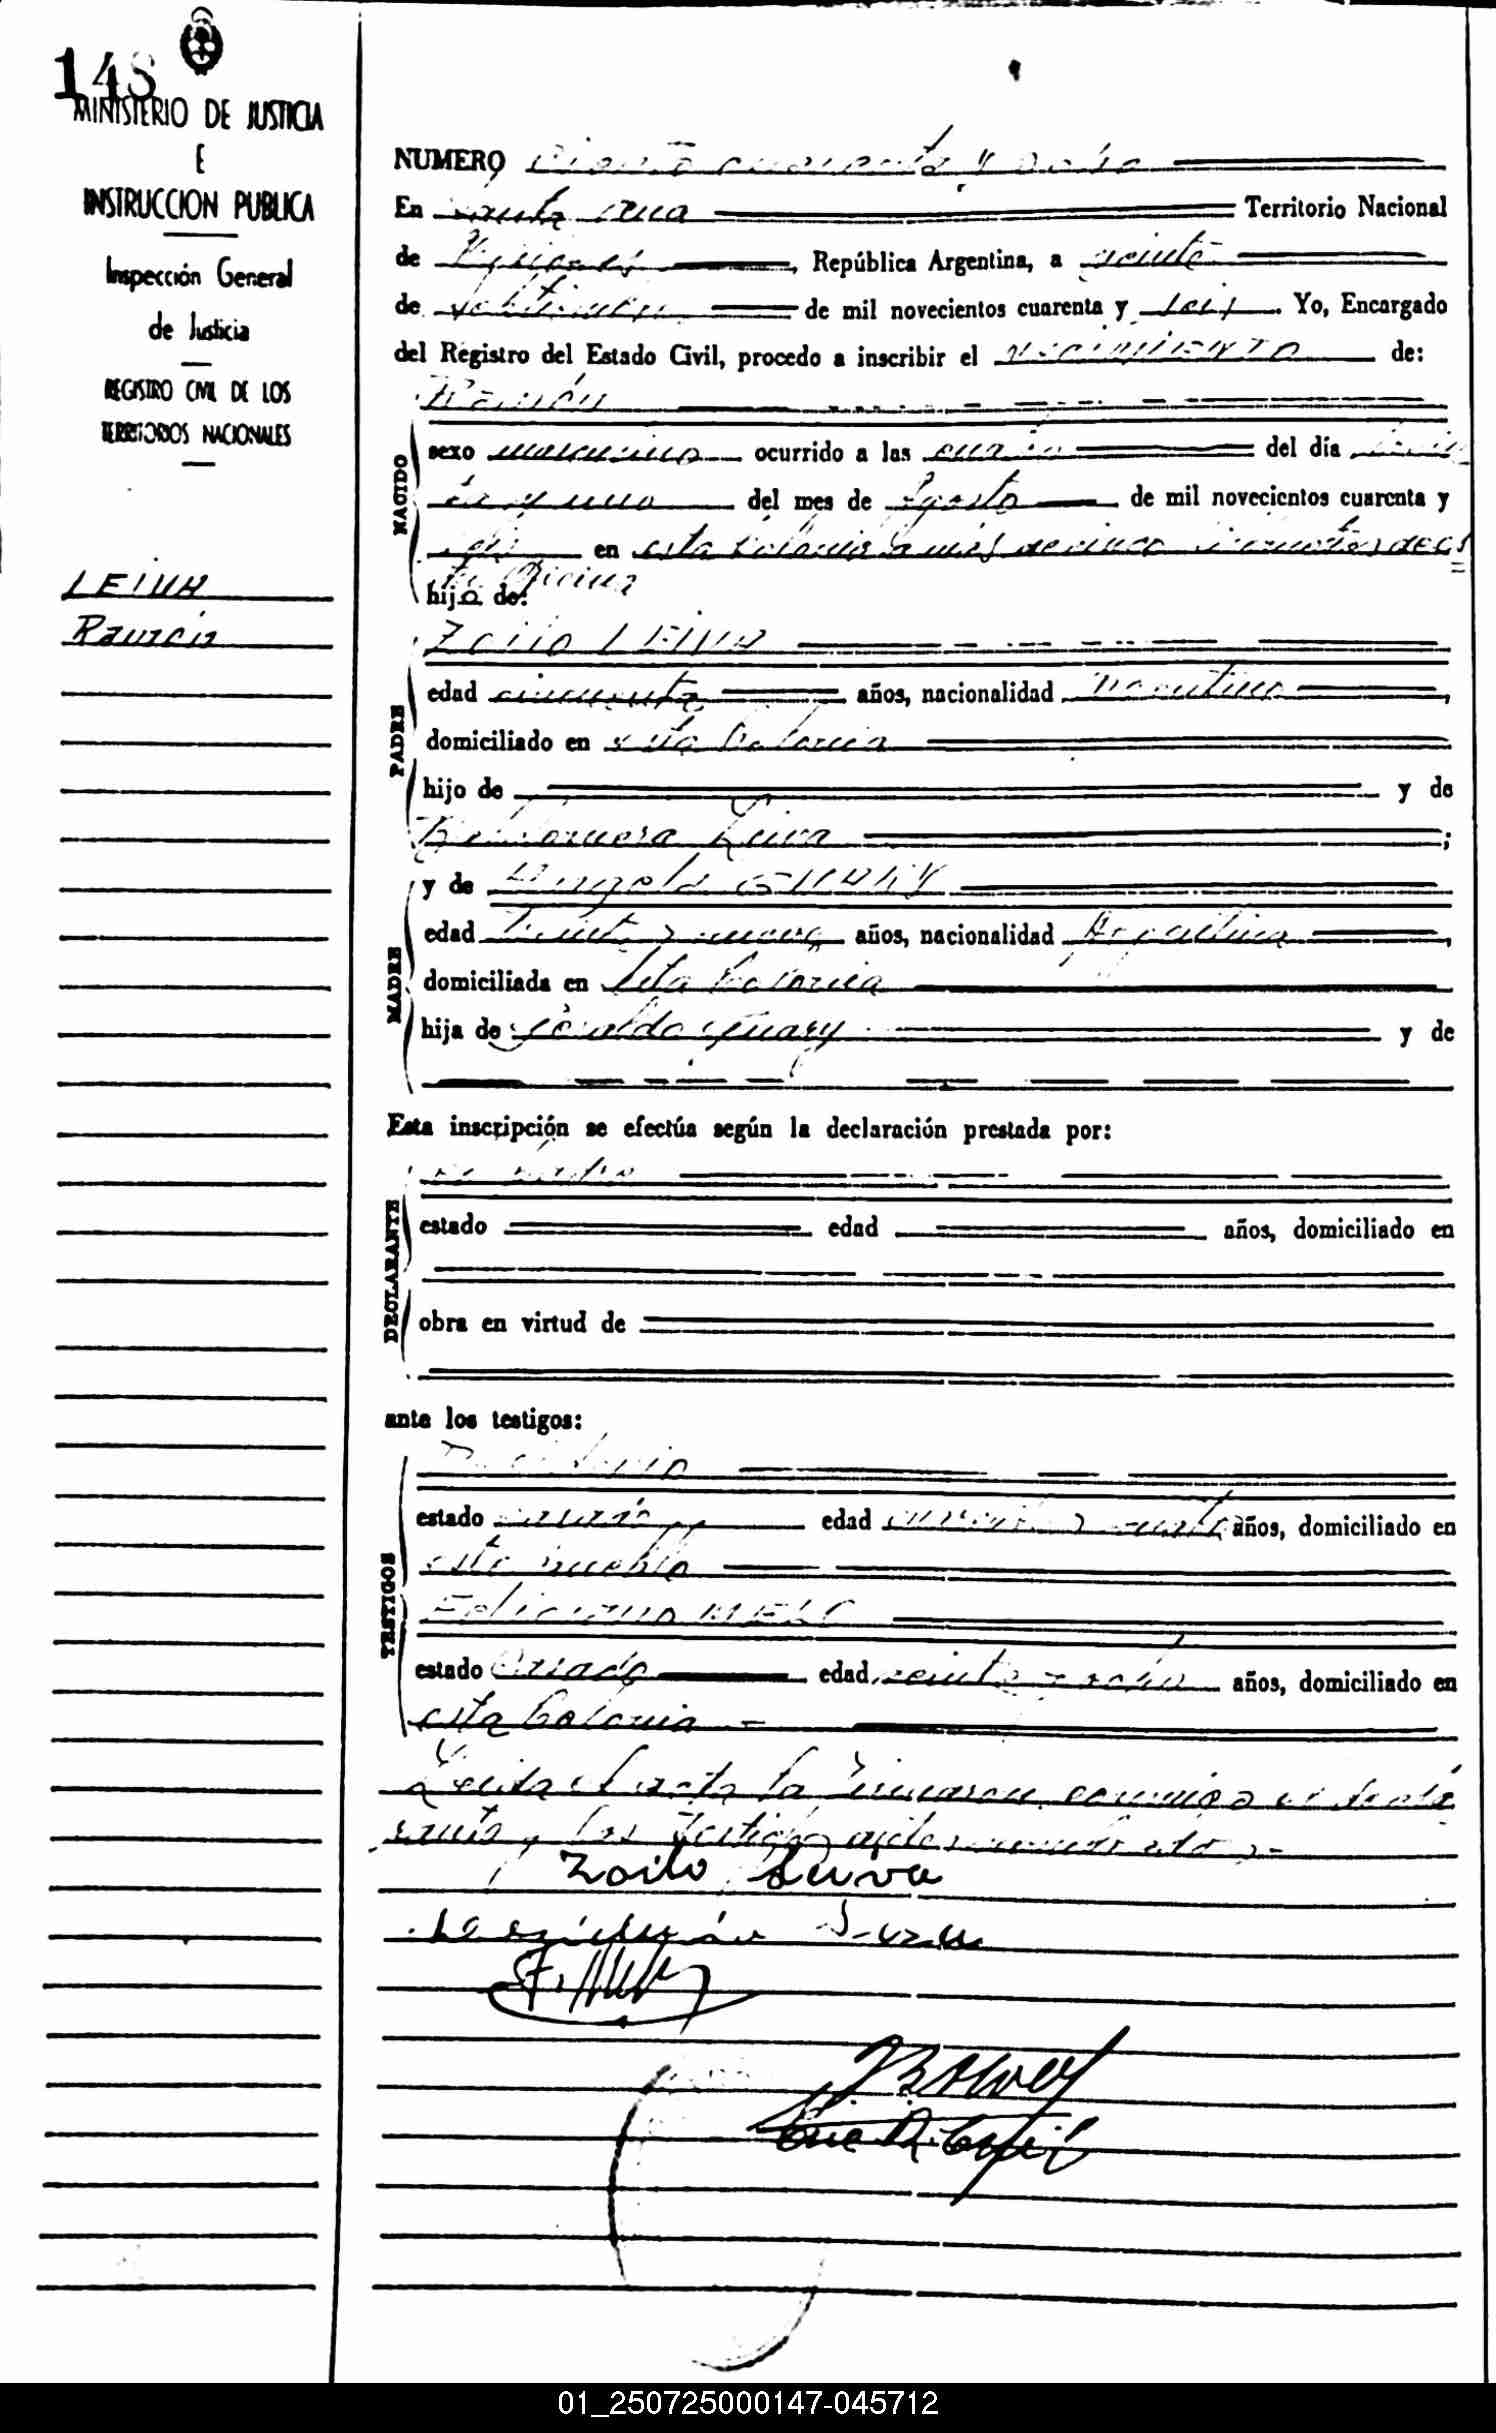 148
MINISTERIO DE JUSTICIA
E
INSTRUCCION PUBLICA
Inspección General
de Justicia
REGISTRO CIVIL DE LOS
TERRITORIOS NACIONALES
LEIVA
Ramón
NUMERO Ciento cuarenta y ocho
En Santa Ana Territorio Nacional
de Misiones, República Argentina, a veinte
de Setiembre de mil novecientos cuarenta y seis. Yo, Encargado
del Registro del Estado Civil, procedo a inscribir el NACIMIENTO de:
Ramón
NACIDO
sexo masculino ocurrido a las cuatro del día trein
ta y uno del mes de Agosto de mil novecientos cuarenta y
seis en esta Colonia a más de cinco kilometros de es
ta Oficina
hijo de:
Zoilo LEIVA
PADRE
edad cincuenta años, nacionalidad Argentino,
domiciliado en esta Colonia
hijo de y de
Leiva;
MADRE
y de GUARY
edad treinta y nueve años, nacionalidad Argentina,
domiciliada en esta Colonia
hija de Guary y de
Esta inscripción se efectúa según la declaración prestada por:
el padre
DECLARANTE
estado edad años, domiciliado en
obra en virtud de
ante los testigos:
TESTIGOS
estado edad cuarenta y cuatro años, domiciliado en
este pueblo
Feliciano
estado Casado edad veinte y ocho años, domiciliado en
esta Colonia
Leida el acta la firmaron conmigo el decla
rante y los testigos
Zoilo Leiva
01_250725000147-045712